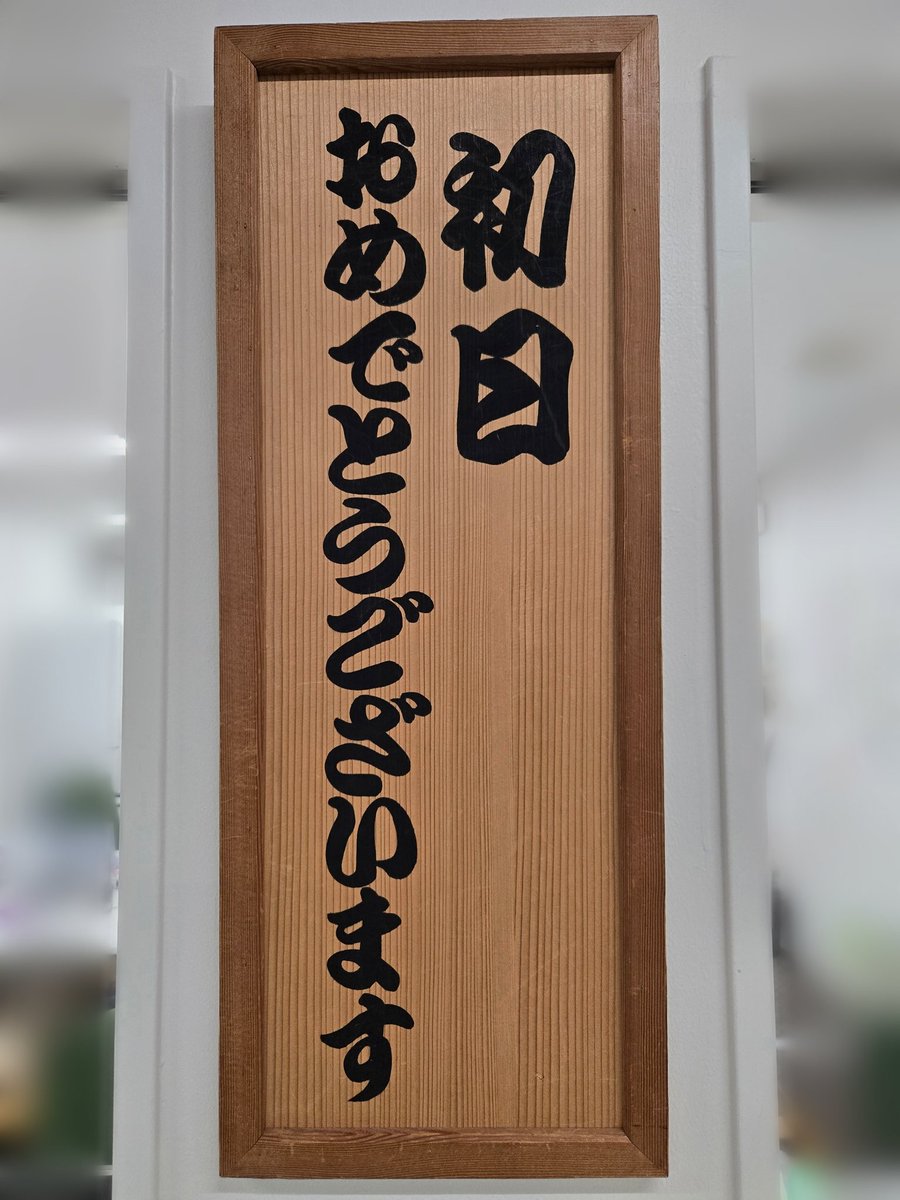 初日
おめでとうございます